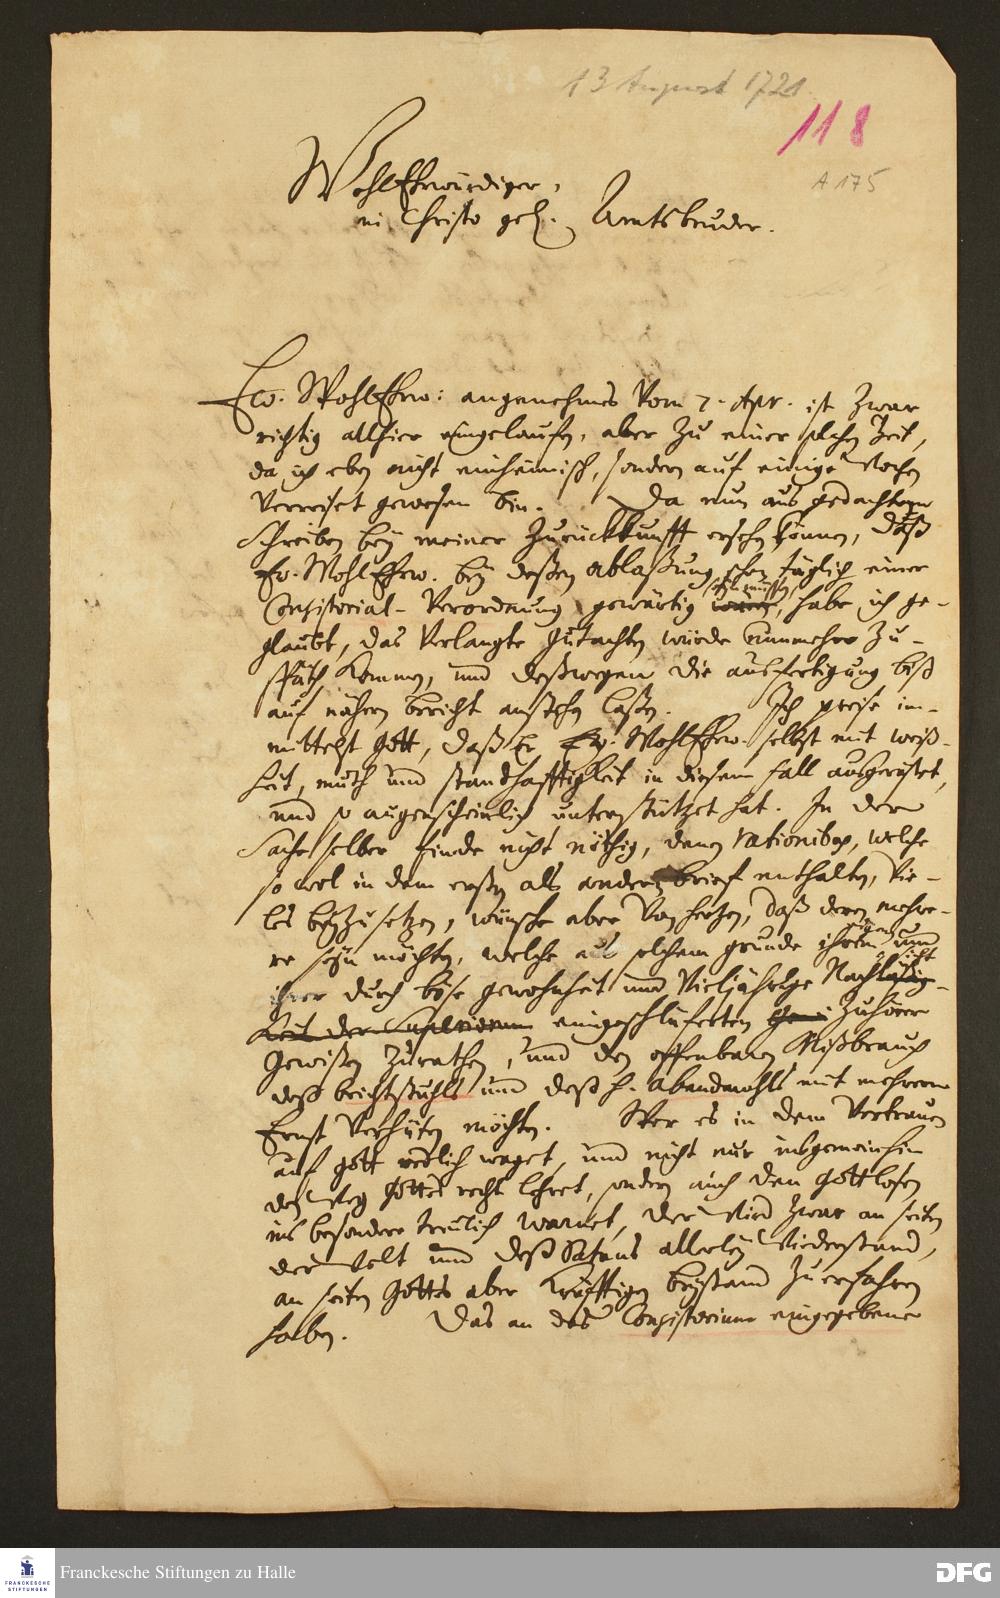 13 August 1721.
118
A 175
WohlEhrwürdiger,
in Christo gel. Amtsbruder.
Ew. WohlEhrw: angenehmes vom 7. Apr. ist zwar
richtig allhier eingelaufen, aber zu einer solchen Zeit,
da ich eben nicht einheimisch, sondern auf einige Wochen
verreiset gewesen bin. Da nun aus gedachtem
Schreiben bey meiner Zurückkunfft ersehen können, daß
Ew. WohlEhrw. bey deßen ablaßung schon täglich einer
Consistorial-Verordnung gewärtig seyn müßen, habe ich ge-
glaubt, das verlangte gutachten würde nunmehro zu-
späth kommen, und deßwegen die ausfertigung biß
auf nähern bericht anstehen laßen. Ich preise im-
mittelst Gott, daß Er Ew. WohlEhrw. selbst mit weiß-
heit, muth und standhafftigkeit in diesem fall ausgerüstet,
und so augenscheinlich unterstützet hat. In der
Sache selber finde nicht nöthig, denen rationibus, welche
so wol in dem ersten als andern brief enthalten, vie-
les beyzusetzen, wünsche aber von hertzen, daß deren mehre-
re seyn möchten, welche aus solchem grunde ihrem und
ihrer durch böse gewohnheit und vieljährige Nachsicht
eingeschläferten Zuhörer
Gewißen zurathen, und den offenbaren Mißbrauch
deß beichtstuhls und deß h. Abendmahls mit mehrerm
Ernst verhüten möchten. Wer es in dem Vertrauen
auf Gott redlich waget, und nicht nur insgemeinhin
den Weg Gottes recht lehret, sondern auch den Gottlosen
ins besondere treulich warnet, der wird zwar an seiten
der Welt und deß Satans allerley Wiederstand,
an seiten Gottes aber kräfftigen beystand zuerfahren
haben. Das an das Consistorium eingegebene
Franckesche Stiftungen zu Halle
FRANCKESCHE
STIFTUNGEN
DFG